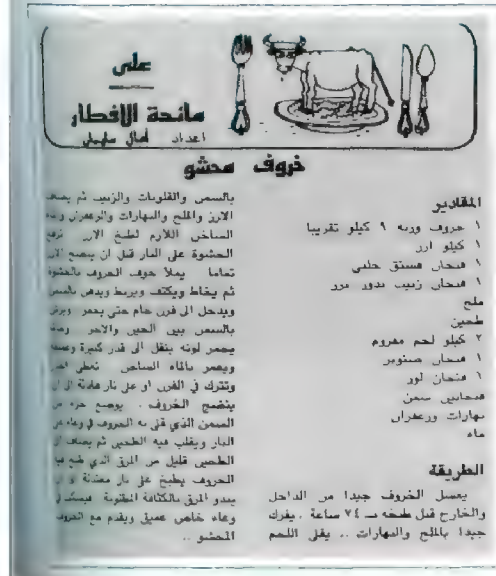 على
مائدة الافطار
اعداد أماني سليمان
خروف محشو
المقادير
١ خروف وزنه ٩ كيلو تقريبا
١ كيلو ارز
١ فنجان فستق حلبي
١ فنجان زبيب بدون بزر
ملح
طحين
٢ كيلو لحم مفروم
١ فنجان صنوبر
٦ فنجان لوز
فنجانين سمن
بهارات وزعفران
ماء
الطريقة
يغسل الخروف جيدا من الداخل
والخارج قبل طبخه بـ ٧٤ ساعة . يفرك
جيدا بالملح والبهارات .. يقلى اللحم
بالسمن والقلوبات والزبيب ثم يضاف
الارز والملح والبهارات والزعفران وماء
الساخن اللازم لطبخ الارز ترفع
الحشوة على النار قبل ان ينضج الارز
تماما يملأ جوف الخروف بالحشوة
ثم يخاط ويكتف ويربط ويدهن بالسمن
ويدخل الى فرن حام حتى يحمر ويرش
بالسمن بين الحين والاخر
يحمر لونه ينقل الى قدر كبيرة
ويغمر بالماء الساخن تغطى
وتترك في الفرن او على نار هادئة الى ان
ينضج الخروف . يوضع جزء من
السمن الذي قلي به الخروف في وعاء على
النار ويقلب فيه الطحين ثم يضاف الى
الطحين قليل من المرق الذي طبخ فيه
الخروف يطبخ على نار معتدلة الى ان
يبدو المرق بالكثافة المطلوبة فيسكب في
وعاء خاص عميق ويقدم مع الخروف
المحشو ..